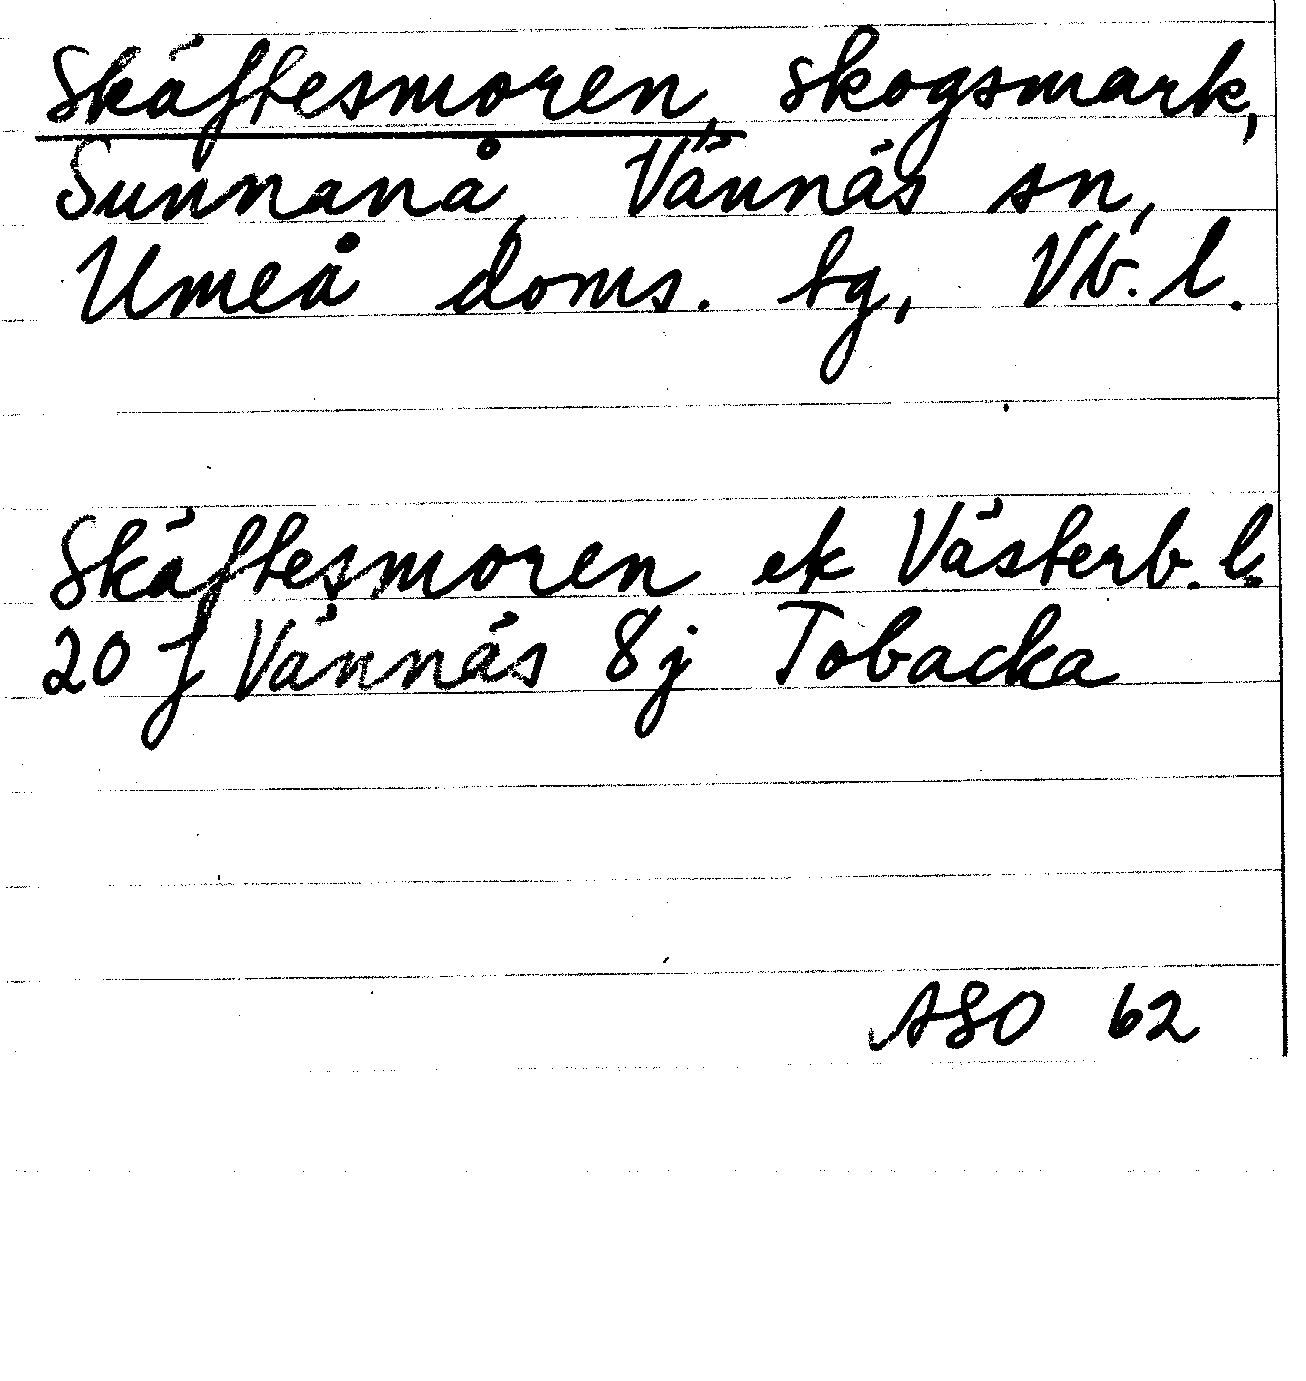 Skäftesmoren, skogsmark,
Sunnanå, Vännäs sn,
Umeå doms. tg, Vb. l.
Skäftesmoren ek Västerb. l.
20 J Vännäs 8j Tobacka
ASO 62